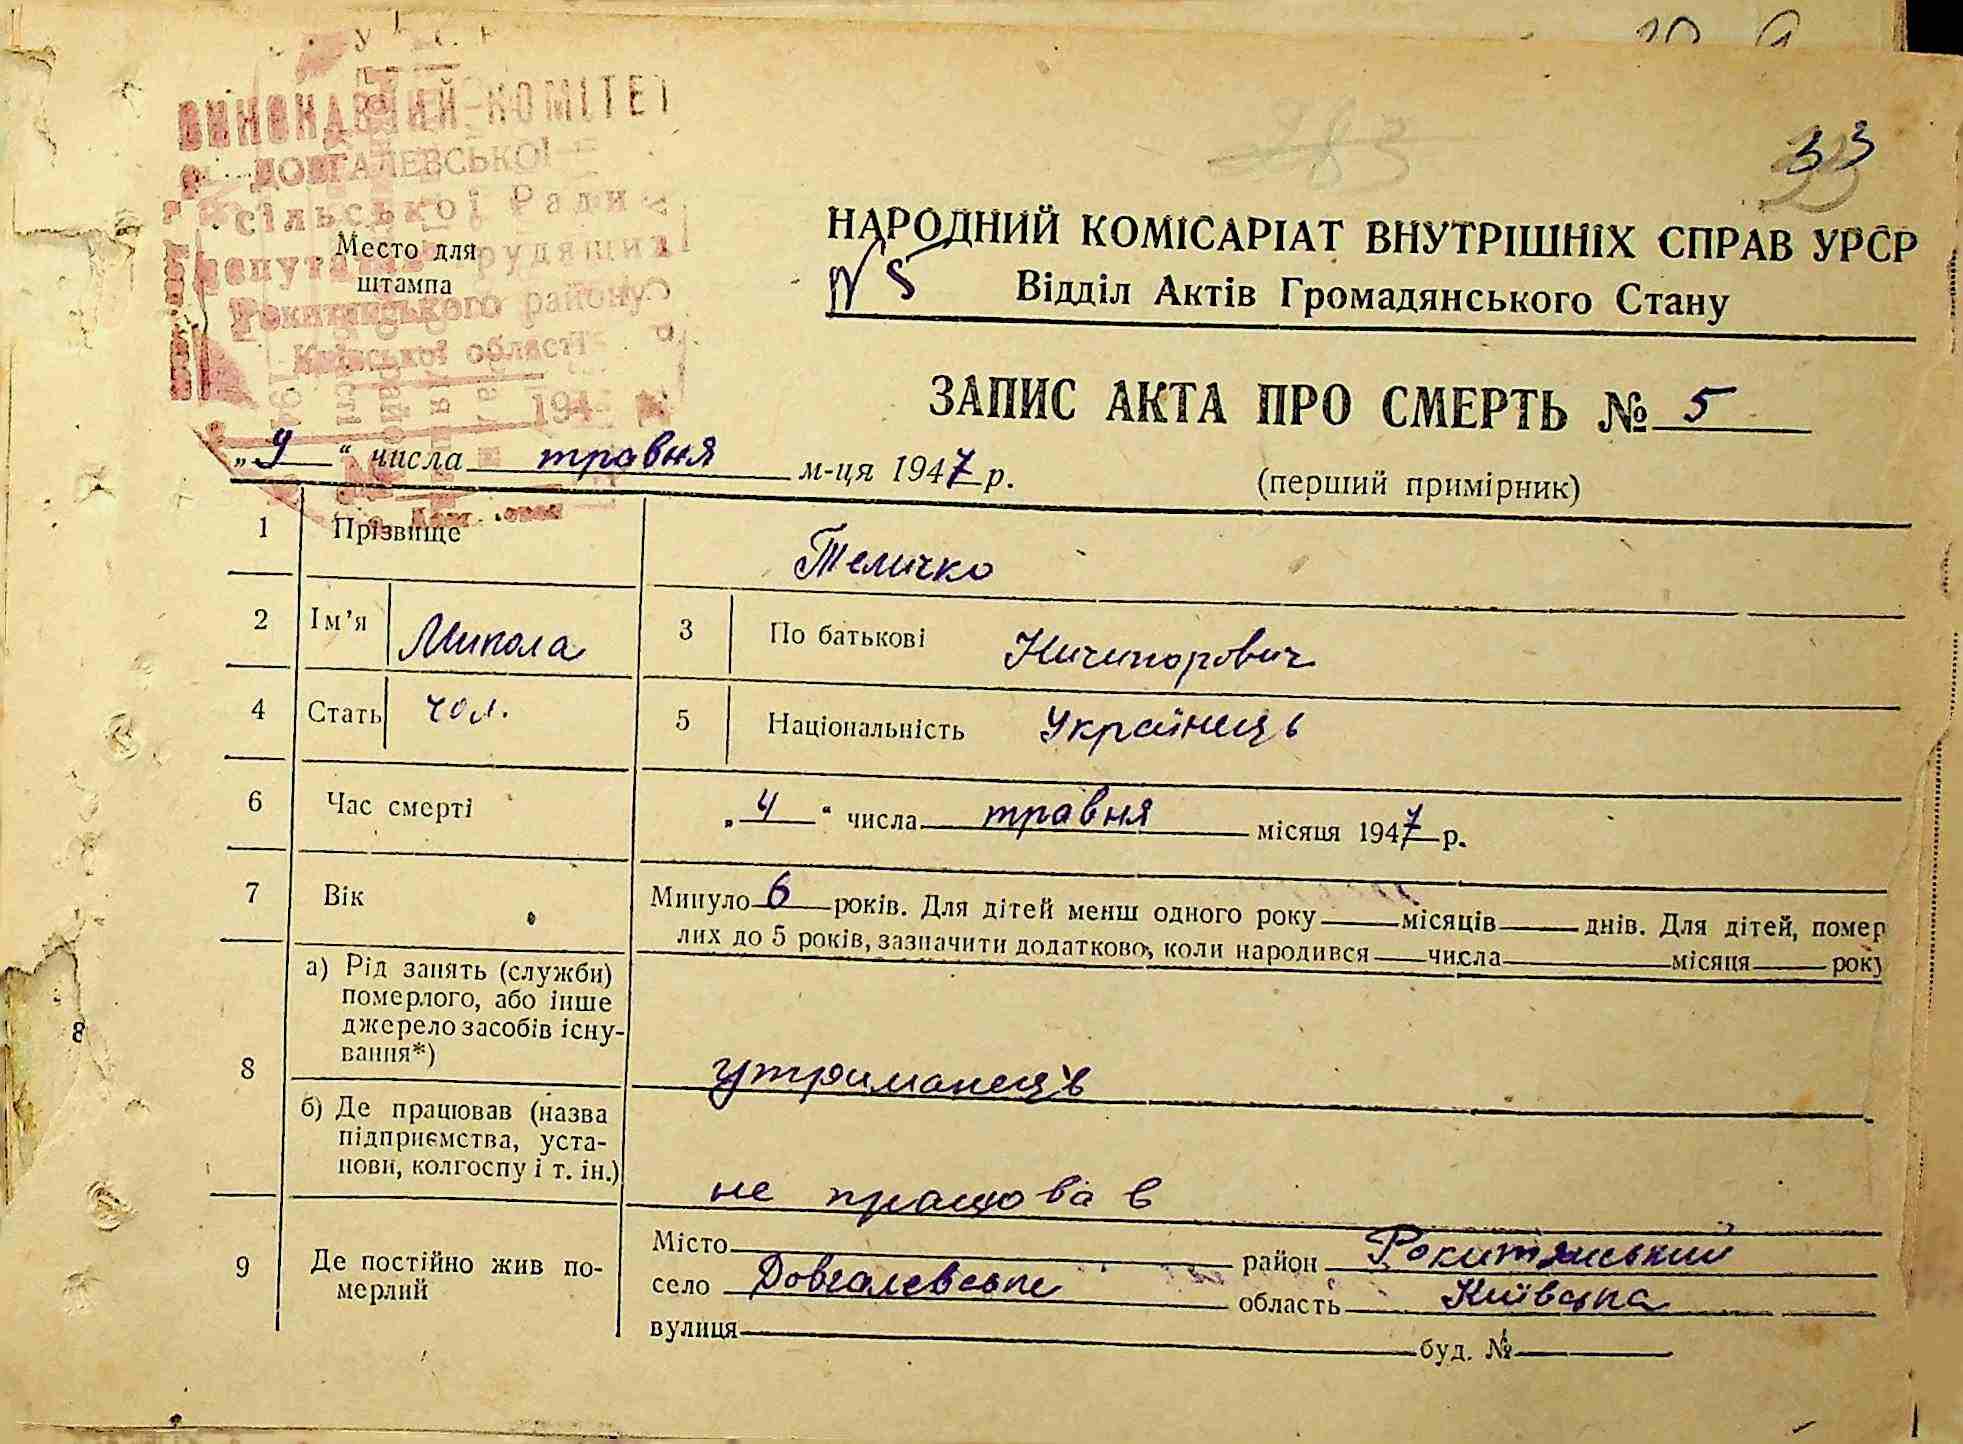 33
ВИКОНАВЧИЙ КОМІТЕТ
ДОВГАЛЕВСЬКОЇ
сільської Ради
депутатів трудящих
Рокитянського району
Київської області
194
Место для
штампа
НАРОДНИЙ КОМІСАРІАТ ВНУТРІШНІХ СПРАВ УРСР
N 5 Відділ Актів Громадянського Стану
ЗАПИС АКТА ПРО СМЕРТЬ № 5
„9“ числа травня м-ця 1947 р. (перший примірник)
1 Прізвище Теличко
2 Ім'я Микола 3 По батькові Ничипорович
4 Стать чол. 5 Національність Українець
6 Час смерті „4“ числа травня місяця 1947 р.
7 Вік Минуло 6 років. Для дітей менш одного року місяців днів. Для дітей, помер
лих до 5 років, зазначити додатково, коли народився числа місяця року
8 а) Рід занять (служби)
померлого, або інше
джерело засобів існу-
вання*) утриманець
8
б) Де працював (назва
підприємства, уста-
нови, колгоспу і т. ін.) не працював
9 Де постійно жив по-
мерлий
Місто район Рокитянський
село Довгалевське область Київська
вулиця буд. №